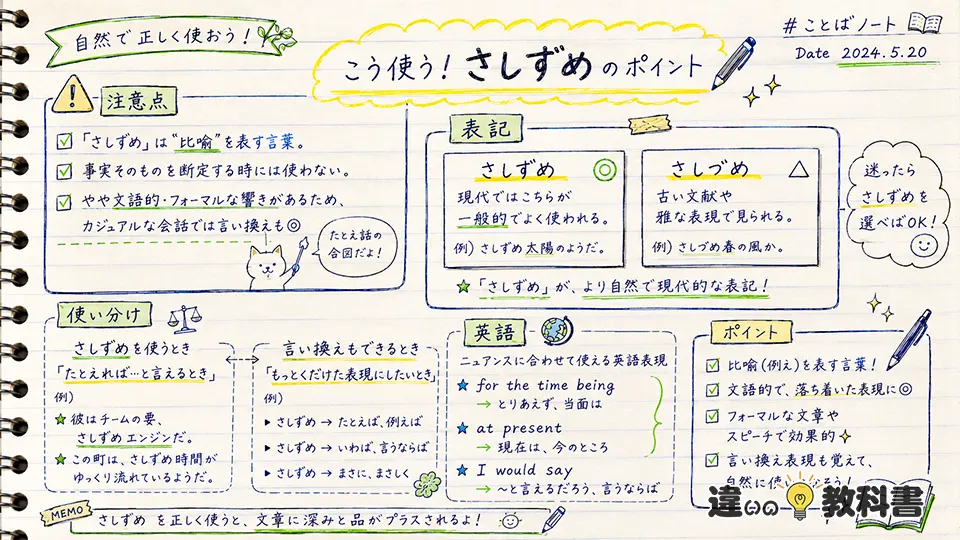 自然で正しく使おう！
こう使う！さしずめのポイント
#ことばノート
Date 2024.5.20
注意点
「さしずめ」は“比喩”を表す言葉。
事実そのものを断定する時には使わない。
やや文語的・フォーマルな響きがあるため、
カジュアルな会話では言い換えも◎
たとえ話の
合図だよ！
表記
さしずめ ◎
現代ではこちらが
一般的でよく使われる。
例）さしずめ太陽のようだ。
さしづめ △
古い文献や
雅な表現で見られる。
例）さしづめ春の風か。
★「さしずめ」が、より自然で現代的な表記！
迷ったら
さしずめを
選べばOK！
使い分け
さしずめを使うとき
「たとえれば…と言えるとき」
例）
★彼はチームの要、
さしずめエンジンだ。
★この町は、さしずめ時間が
ゆっくり流れているようだ。
言い換えもできるとき
「もっとくだけた表現にしたいとき」
例）
▶さしずめ→たとえば、例えば
▶さしずめ→いわば、言うならば
▶さしずめ→まさに、まさしく
英語
ニュアンスに合わせて使える英語表現
★ for the time being
→とりあえず、当面は
★ at present
→現在は、今のところ
★ I would say
→〜と言えるだろう、言うならば
ポイント
比喩（例え）を表す言葉！
文語的で、落ち着いた表現に◎
フォーマルな文章や
スピーチで効果的
言い換え表現も覚えて、
自然に使
そう！
MEMO
さしずめ を正しく使うと、文章に深みと品がプラスされるよ！
違いの教科書